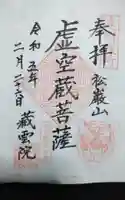 奉拝 松巌山
虚空蔵菩薩
令和五年
二月二十六日
蔵雲院